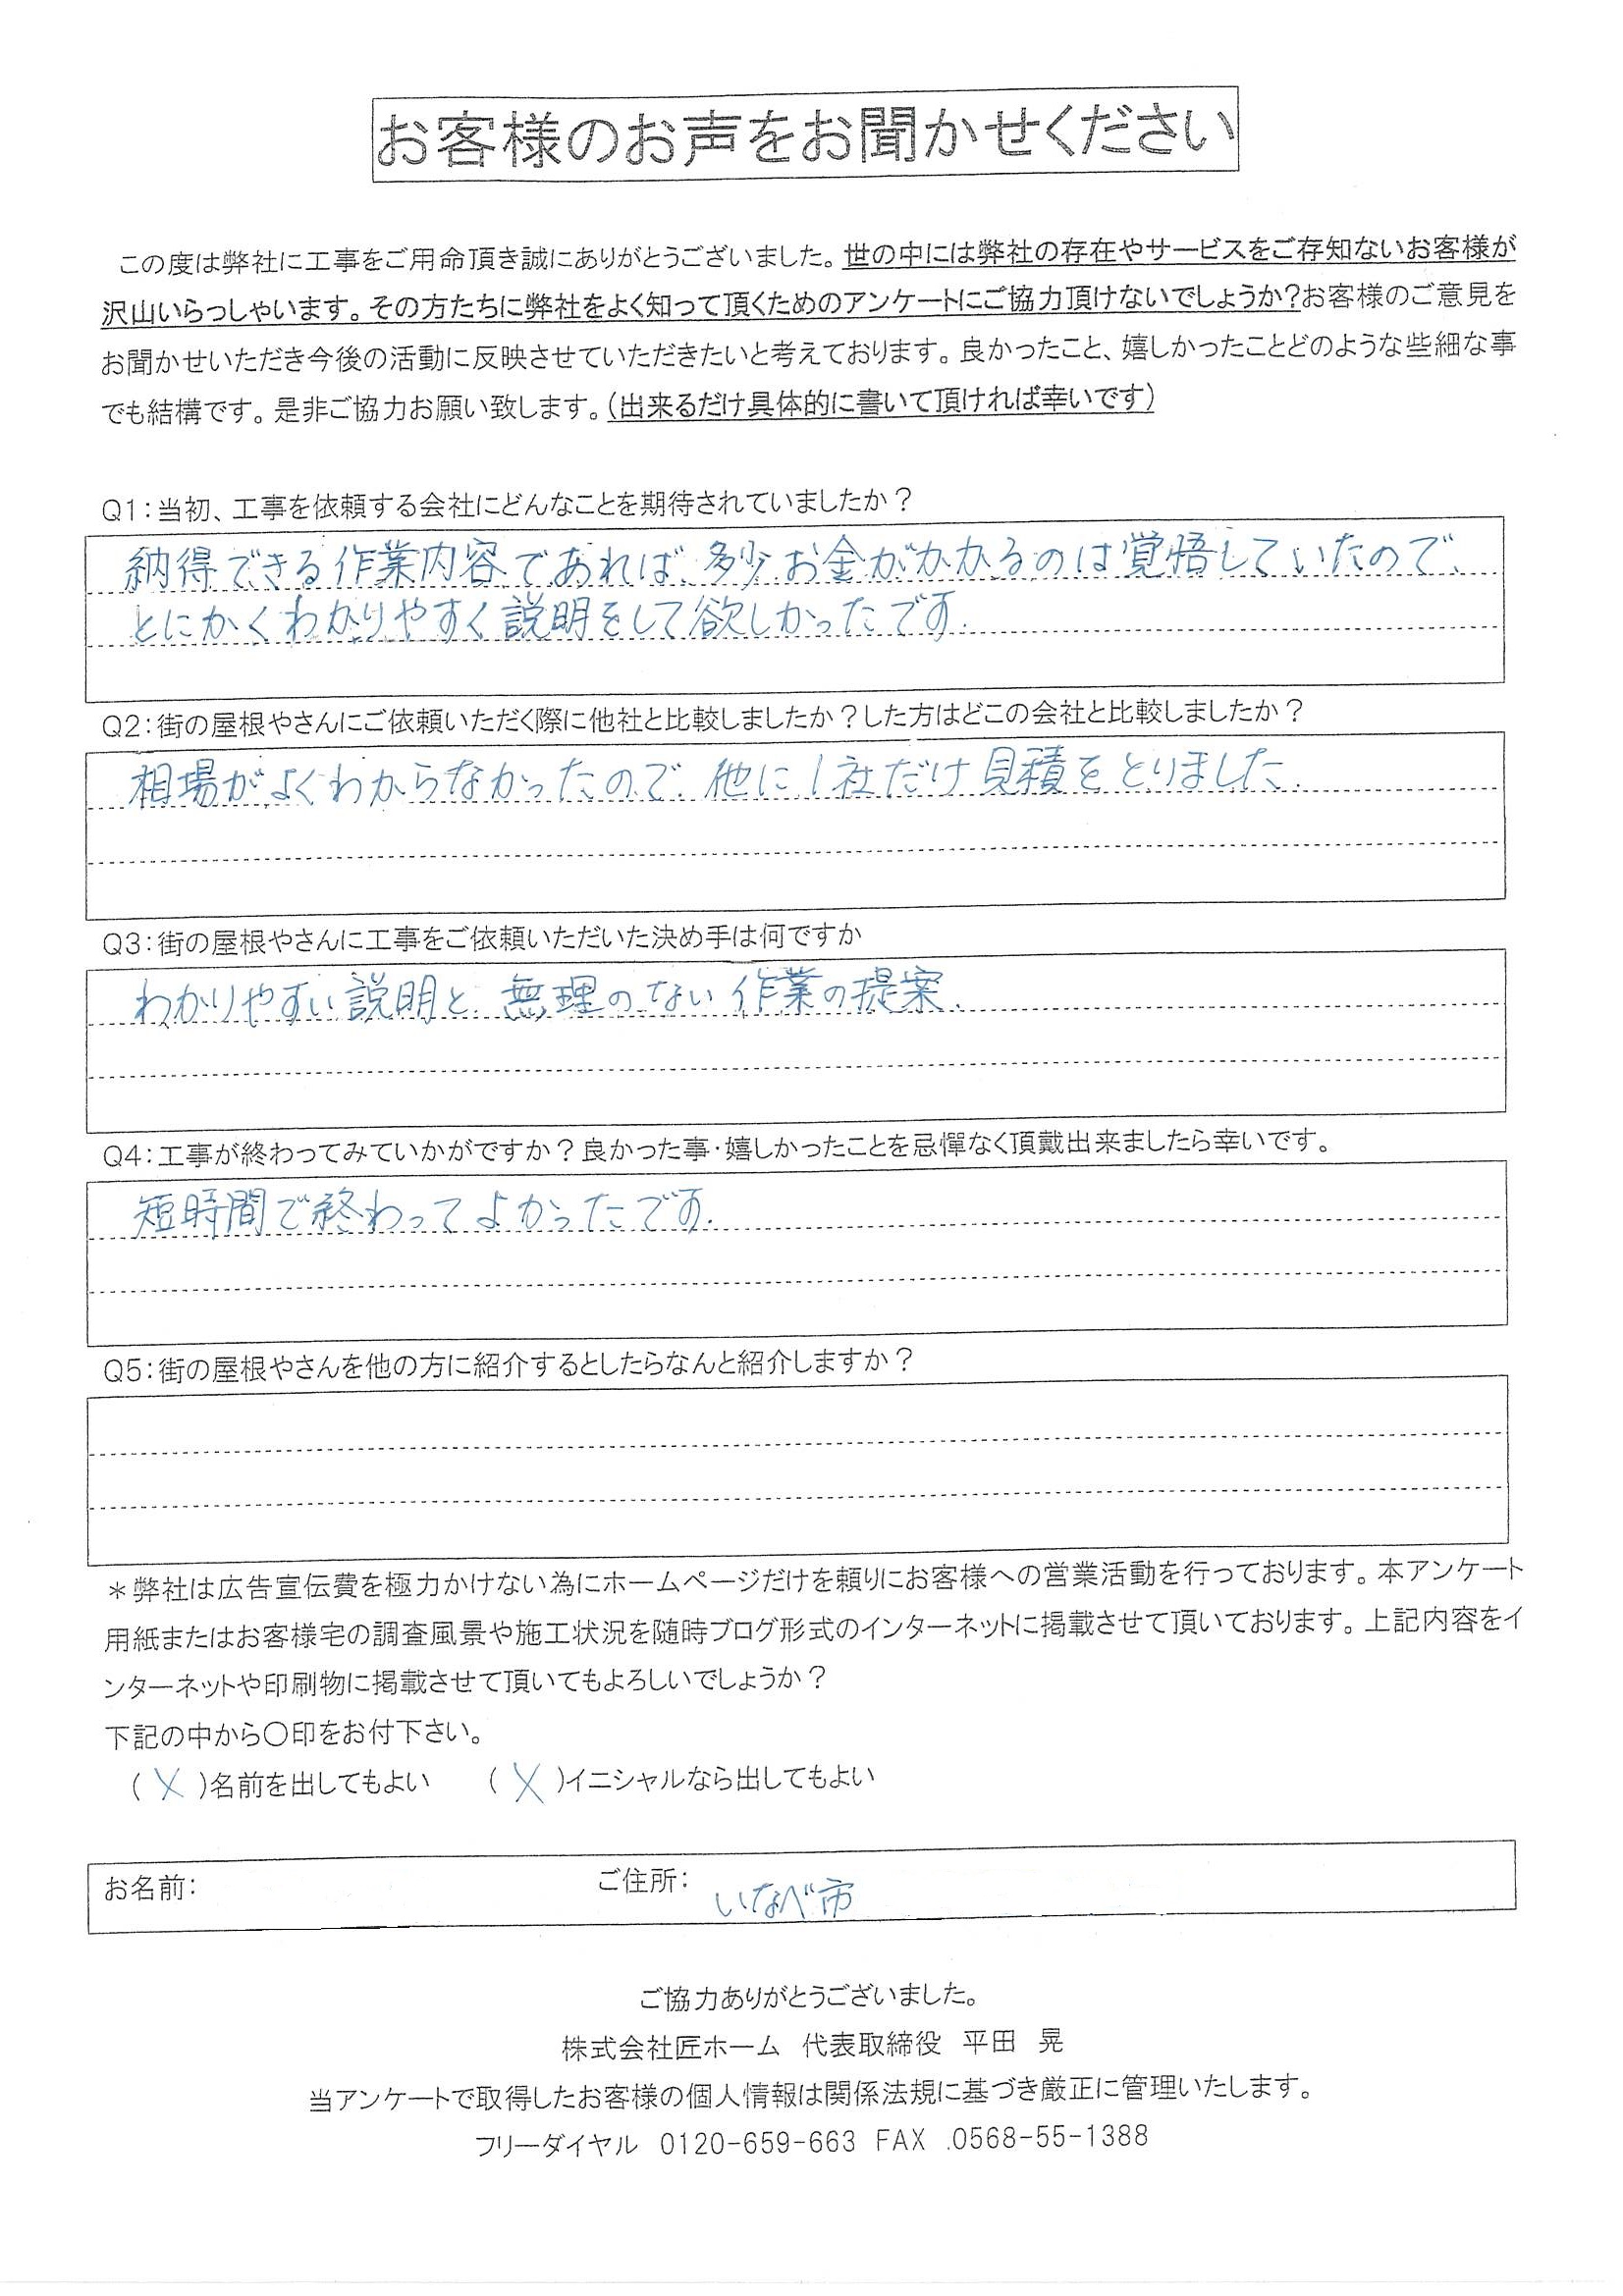 お客様のお声をお聞かせください
この度は弊社に工事をご用命頂き誠にありがとうございました。世の中には弊社の存在やサービスをご存知ないお客様が
沢山いらっしゃいます。その方たちに弊社をよく知って頂くためのアンケートにご協力頂けないでしょうか?お客様のご意見を
お聞かせいただき今後の活動に反映させていただきたいと考えております。良かったこと、嬉しかったことどのような些細な事
でも結構です。是非ご協力お願い致します。(出来るだけ具体的に書いて頂ければ幸いです)
Q1:当初、工事を依頼する会社にどんなことを期待されていましたか？
納得できる作業内容であれば、多少お金がかかるのは覚悟していたので、
とにかくわかりやすく説明をして欲しかったです.
Q2:街の屋根やさんにご依頼いただく際に他社と比較しましたか？した方はどこの会社と比較しましたか？
相場がよくわからなかったので、他に1社だけ見積をとりました.
Q3:街の屋根やさんに工事をご依頼いただいた決め手は何ですか
わかりやすい説明と、無理のない作業の提案.
Q4:工事が終わってみていかがですか？良かった事・嬉しかったことを忌憚なく頂戴出来ましたら幸いです。
短時間で終わってよかったです.
Q5:街の屋根やさんを他の方に紹介するとしたらなんと紹介しますか？
＊弊社は広告宣伝費を極力かけない為にホームページだけを頼りにお客様への営業活動を行っております。本アンケート
用紙またはお客様宅の調査風景や施工状況を随時ブログ形式のインターネットに掲載させて頂いております。上記内容をイ
ンターネットや印刷物に掲載させて頂いてもよろしいでしょうか？
下記の中から〇印をお付下さい。
(X)名前を出してもよい (X)イニシャルなら出してもよい
お名前: ご住所: いなべ市
ご協力ありがとうございました。
株式会社匠ホーム 代表取締役 平田 晃
当アンケートで取得したお客様の個人情報は関係法規に基づき厳正に管理いたします。
フリーダイヤル 0120-659-663 FAX .0568-55-1388